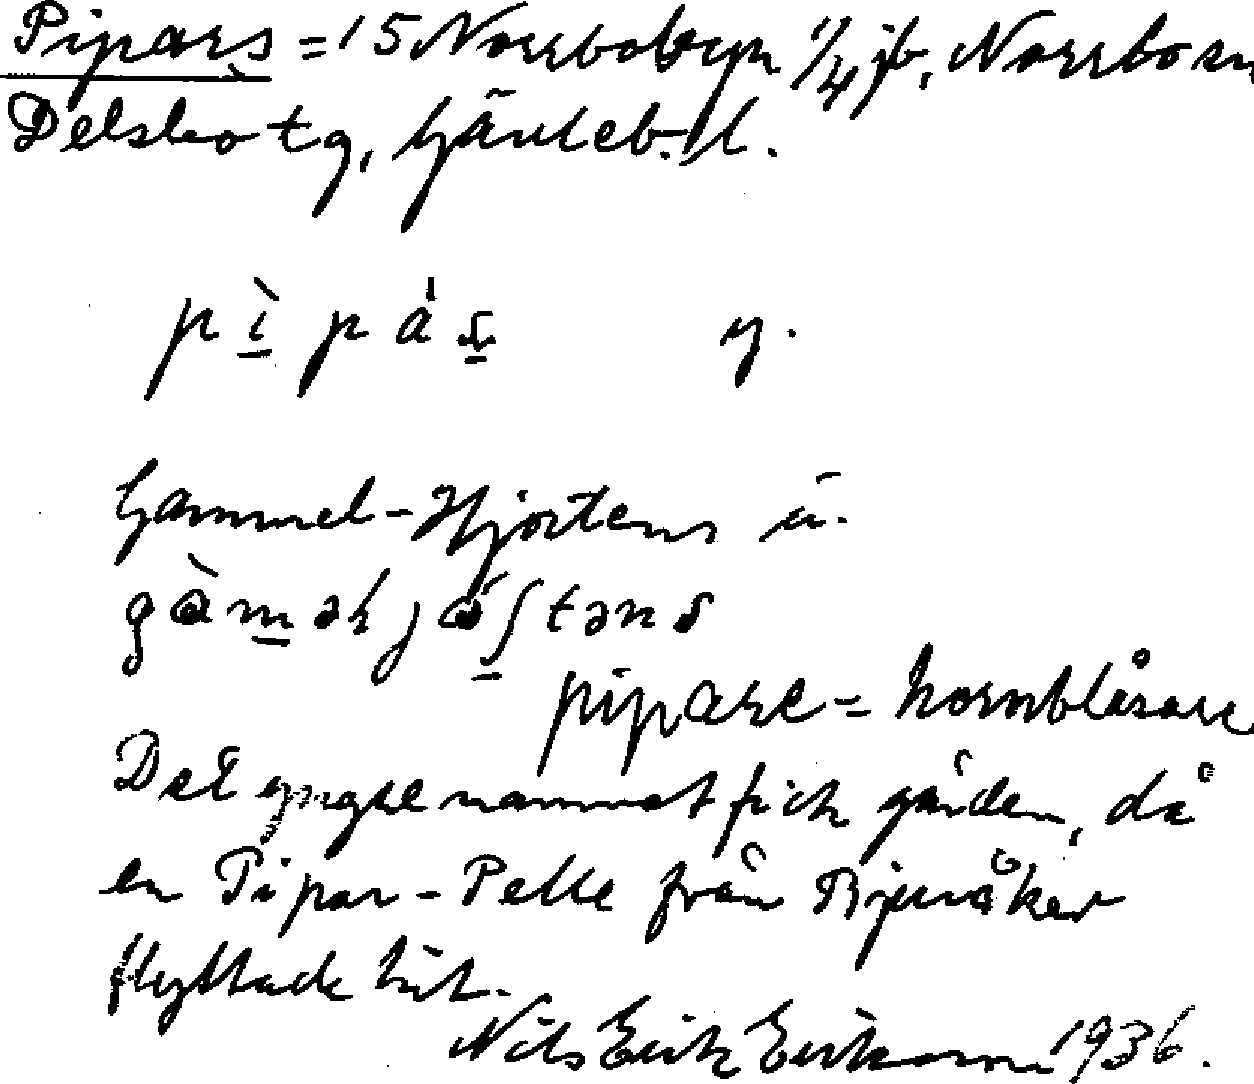 Pipars = 15 Norrbobyn 1/4 jb, Norrbo sn
Delsbo tg, Gävleb. l.
pìpás y.
Gammel-Hjortens ä.
gàməl jo̗ʃtəns
pipare = hornblåsare
Det yngre namnet fick gården, då
en Pipar-Pelle från Bjuråker
flyttade hit.
Nils Erik Eriksson 1936.